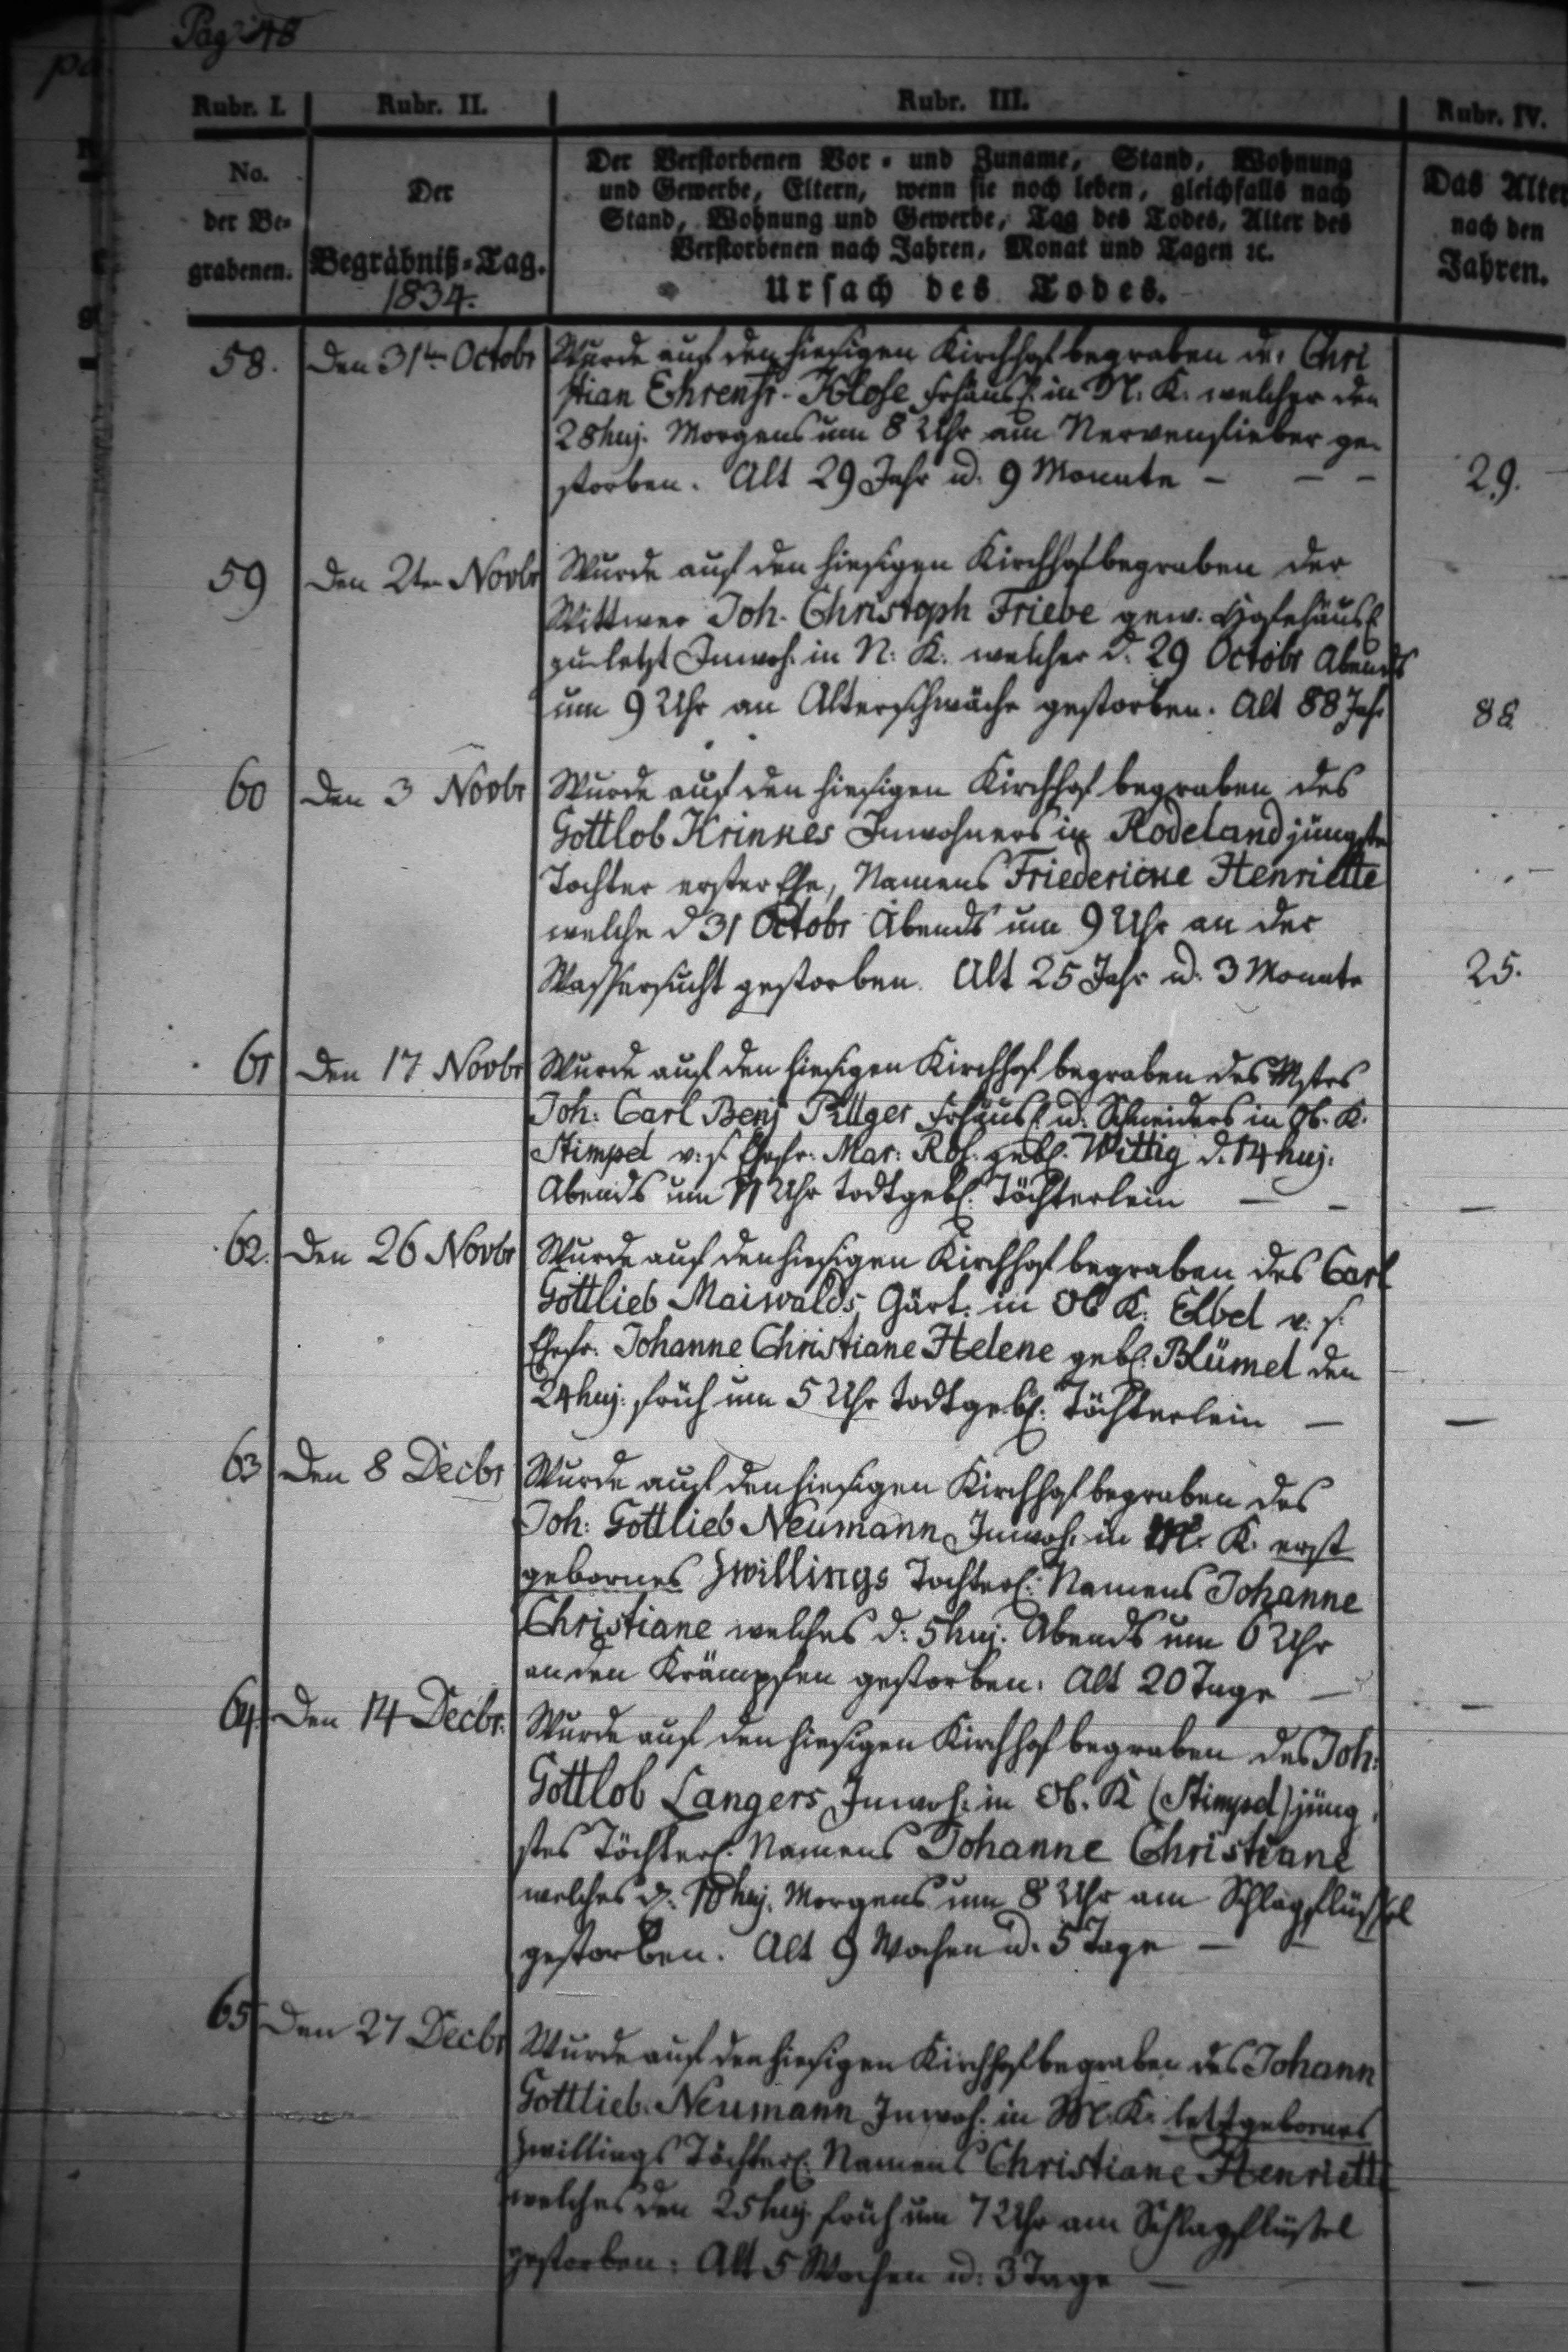 Pag: 48
Rubr. I. Rubr. II. Rubr. III. Rubr. IV.
No. der Be- grabenen.
Der Begräbniß-Tag. 1834.
Der Verstorbenen Vor- und Zuname, Stand, Wohnung
und Gewerbe, Eltern, wenn sie noch leben, gleichfalls nach
Stand, Wohnung und Gewerbe, Tag des Todes, Alter des
Verstorbenen nach Jahren, Monat und Tagen ꝛc.
Ursach des Todes.
Das Alter nach den Jahren.
58. Den 31ten Octobr Wurde auf den hiesigen Kirchhof begraben der Chri
stian Ehrenfr. Klose Frhäusl. in N. K. welcher den
28 huj. Morgens um 8 Uhr am Nervenfieber ge-
storben. Alt 29 Jahr u. 9 Monate – – – 29.
59 Den 2ten Novbr Wurde auf den hiesigen Kirchhof begraben der
Wittwer Joh. Christoph Friebe gew. Hofehäusl
zuletzt Inwoh. in N. K. welcher d. 29 Octobr Abends
um 9 Uhr an Alterschwäche gestorben. Alt 88 Jahr 88
60 Den 3 Novbr Wurde auf den hiesigen Kirchhof begraben des
Gottlob Krinkes Inwohners in Rodeland jüngste
Tochter erster Ehe, Namens Friedericke Henriette
welche d 31 Octobr Abends um 9 Uhr an der
Wassersucht gestorben. Alt 25 Jahr u. 3 Monate 25.
61 Den 17 Novbr Wurde auf den hiesigen Kirchhof begraben des Mstrs
Joh. Carl Benj Frhäusl. u. Schneiders in Ob. K.
Stimpel v. s. Ehefr. Mar. Ros. gebl. Wittig d. 14 huj.
Abends um 11 Uhr todtgebl. Töchterlein – – –
62. Den 26 Novbr Wurde auf den hiesigen Kirchhof begraben des Carl
Gottlieb Maiwalds Gärt. in Ob K. Elbel v. s.
Ehefr. Johanne Christiane Helene gebl. Blümel den
24 huj. früh um 5 Uhr todtgebl. Töchterlein – –
63 Den 8 Decbr Wurde auf den hiesigen Kirchhof begraben des
Joh: Gottlieb Neumann Inwoh. in M. K. erst
gebornes Zwillings Töchterl. Namens Johanne
Christiane welches d. 5 huj. Abends um 6 Uhr
an den Krämpfen gestorben. Alt 20 Tage – –
64. Den 14 Decbr. Wurde auf den hiesigen Kirchhof begraben des Joh:
Gottlob Langers Inwoh. in Ob. K (Stimpel) jüng
stes Töchterl. Namens Johanne Christiane
welches d. 10 huj. Morgens um 8 Uhr am Schlagflüssel
gestorben. Alt 9 Wochen u. 5 Tage – –
65 Den 27 Decbr Wurde auf den hiesigen Kirchhof begraben des Johann
Gottlieb Neumann Inwoh. in M. K. letztgebornes
Zwillings Töchterl. Namens Christiane Henriette
welches den 25 huj. früh um 7 Uhr am Schlagflüssel
gestorben: Alt 5 Wochen u. 3 Tage – –